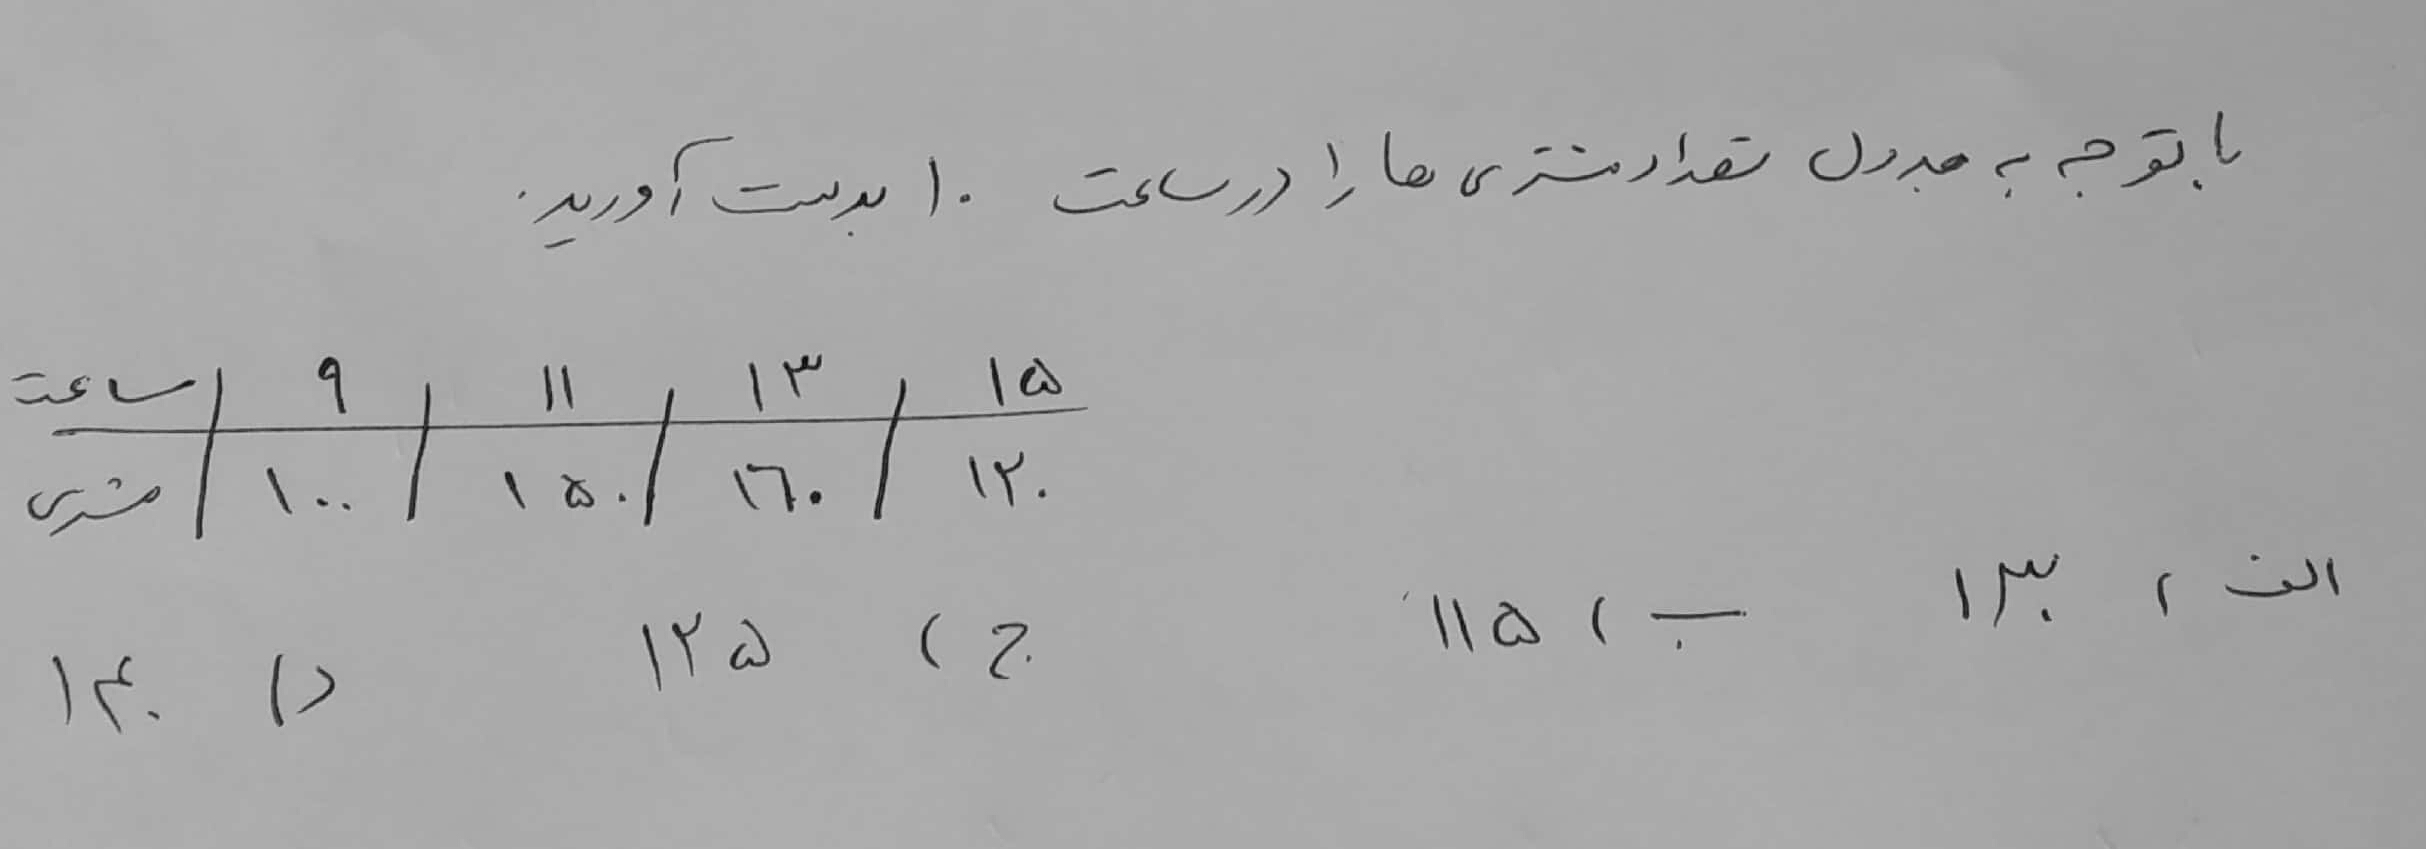 با توجه به جدول تعداد مشتری ها را در ساعت ۱۰ بدست آورید.
ساعت | ۹ | ۱۱ | ۱۳ | ۱۵
مشتری | ۱۰۰ | ۱۵۰ | ۱۶۰ | ۱۲۰
الف) ۱۳۰ ب) ۱۱۵ ج) ۱۲۵ د) ۱۴۰